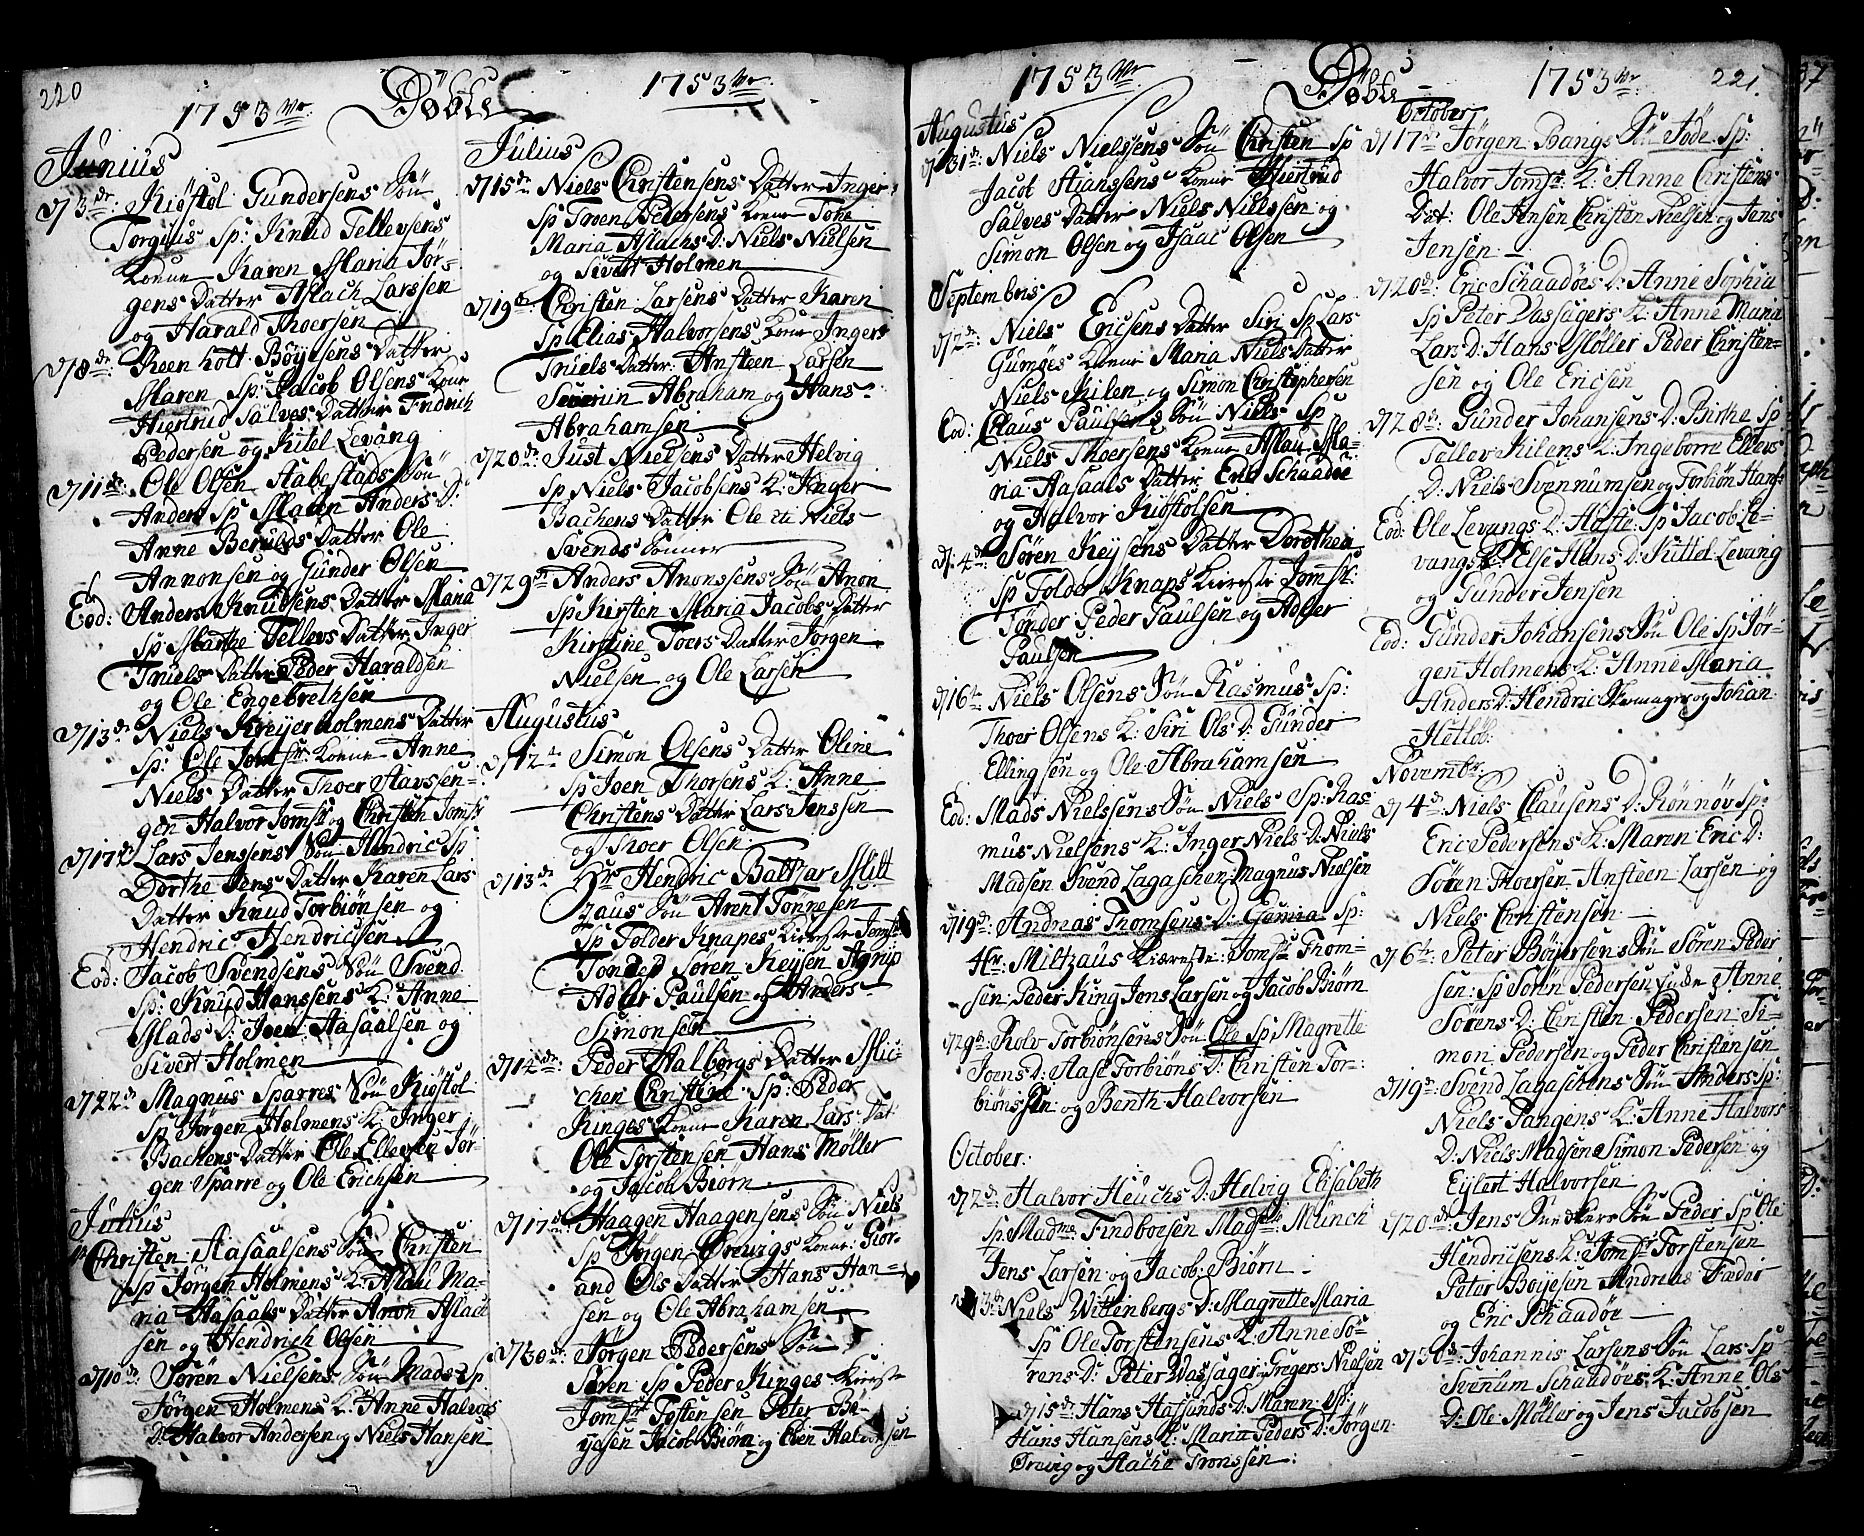 220
1753 Døbte 1753
Junius
d/ 3 Kiøstol Gundersens Søn
Torgius Sp: Knud Tellevsens
Kone Karen Maria Jør-
gens Datter Aslach Larssen
og Harald Thoersen
d/ 8 Reenholt Böyesens Datter
Maren Sp: Jacob Olsens Kone
Hiertrud Salves Datter Fridrich
Pedersen og Kitel Levang
d/ 11 Ole Olsen Stabestads Søn
Anders Sp Maren Anders D:
Anne Berulds Datter Ole
Annonsen og Gunder Olsen
Eod: Anders Knudsens Datter Maria
Sp Marthe Tellevs Datter Inger
Truels Datter Peder Haraldsen
og Ole Engebrethsen
d/ 13 Niels Kreyerholmens Datter
Sp: Ole Kone Anne
Niels Datter Thoer Aavssen
gen Halvor og Christen
d/ 17 Lars Jenssens Søn Hendric Sp
Dorthe Jens Datter Karen Lars
Datter Knud Torbiønsen og
Hendric Hendricsen
Eod: Jacob Svendsens Søn Svend
Sp: Knud Hanssens K: Anne
Mads D: Joen Aasaalsen og
Sivert Holmen
d/ 22 Magnus Sparres Søn Kiøstol
Sp Jørgen Holmens K: Inger
Bachens Datter Ole Ellevsen Jør-
gen Sparre og Ole Erichsen
Julius
Christen Aasaalsens Søn Christen
Sp Jørgen Holmens K: Aslau Ma-
ria Aasaals Datter Anon Aslach
sen og Hendrich Olsen
d/ 10 Søren Nielsens Søn Mads Sp
Jørgen Holmens K: Anne Halvors
D: Halvor Andersen og Niels Hansen
Julius
d/ 15 Niels Christensens Datter Inger
Sp Troen Pedersens Kone Tohe
Maria Aslachs D: Niels Nielsen
og Sivert Holmen
d/ 19 Christen Larsens Datter Karen
Sp Elias Halvorsens Kone Inger
Truels Datter Ansteen Larsen
Severin Abraham og Hans
Abrahamsen
d/ 20 Just Nielsens Datter Helvig
Sp Niels Jacobsens K: Inger
Bachens Datter Ole etc Niels
Svends Sønner
d/ 29 Anders Anonssens Søn Anon
Sp Kirsten Maria Jacobs Datter
Kirstine Toers Datter Jørgen
Nielsen og Ole Larsen
Augustus
d/ 12 Simon Olsens Datter Oline
Sp Joen Thorsens K: Anne
Christens Datter Lars Jenssen
og Thoer Olsen
d/ 13 Hr Hendric Baltzar Milt
zaus Søn Arent Tonnesen
Sp Folder Knapes Kiereste
Tonder Søren Keysen Agrup
Adler Paulsen og Anders
Simonsen
d/ 14 Peder Halborgs Datter Mic-
chen Christine Sp: Peder
Kinges Kone Karen Lars Dat:
Ole Torstensen Hans Møller
og Jacob Biørn
d/ 17 Haagen Haagensens Søn Niels
Sp Jørgen Ørevigs Kone Giør-
and Ols Datter Hans Han-
sen og Ole Abrahamsen
d/ 30 Jørgen Pedersens Søn
Søren Sp Peder Kinges Kiereste
Tostensen Peter Bø-
yesen Jacob Biørn og Even Halvorsen
1753 Døbte 1753 221.
Augustus
d/ 31 Niels Nielsens Søn Christen Sp
Jacob Stianssens Kone Hiertrud
Salves Datter Niels Nielssen og
Simon Olsen og Isaac Olsen
Septembris
d/ 2 Niels Ericsens Datter Siri Sp Lars
Gumøes Kone Maria Niels Datter
Niels Kilen og Simon Christophersen
Eod: Claus Paulsens Søn Niels Sp
Niels Thoersens Kone Aslau Ma-
ria Aasaals Datter Eric Schaadøe
og Halvor Kiøstolsen
d/ 4 Søren Keysens Datter Dorothea
Sp Folder Knaps Kiereste
Tønder Peder Paulsen og Adler
Paulsen
d/ 16 Niels Olsens Søn Rasmus Sp:
Thoer Olsens K: Siri Ols D: Gunder
Ellingsen og Ole Abrahamsen
Eod: Mads Nielsens Søn Niels Sp: Ras
mus Nielsens K: Inger Niels D: Niels
Madsen Svend Lagaschen Magnus Nielsen
d/ 19 Andreas Thomsens D: Sp:
Hr: Miltzaus Kiæreste Thom-
sen Peder King Jons Larsen og Jacob Biørn
d/ 29 Rolv Torbiønsens Søn Ole Sp: Magrette
Joens D: Aase Torbiøns D: Christen Tor-
biønssen og Benth Halvorsen
October:
d/ 2 Halvor Heuchs D: Helvig Elisabeth
Sp: Madme Findboesen Munch
Jens Larsen og Jacob Biørn
Niels Wittenbergs D: Magrette Maria
Sp Ole Torstensens K: Anne Sø-
rens D: Peter Vassager Gregers Nielsen
d/ 15 Hans Haslunds D: Maren Sp:
Hans Hansens K: Maria Peders D: Jørgen
Ørevig og Aache Tronssen:
October
d/ 17 Jørgen Bangs Søn Jode Sp:
Halvor K: Anne Christens
Dat: Ole Jensen Christen Nielsen og Jens
Jensen
d/ 20 Eric Schaadøes D: Anne Sophia
Sp Peter Vassagers K: Anne Maria
Lars D: Hans Møller Peder Christen-
sen og Ole Ericsen
d/ 28 Gunder Johansens D: Birthe Sp
Tellev Kilens K: Ingeborre Ellevs
D: Niels Svennumsen og Torbiøn Hans
Eod: Ole Levangs D: Aaste Sp Jacob Le-
vangs K: Else Hans D: Kittel Levang
og Gunder Jensen
Eod: Gunder Johansens Søn Ole Sp Jør-
gen Holmens K: Anne Maria
Anders D: Hendric og Johan
Novembr:
d/ 4 Niels Clausens D: Rønnøv Sp:
Eric Pedersens K: Maren Eric D:
Søren Thoersen Ansteen Larsen og
Niels Christensen
d/ 6 Peter Böyesens Søn Søren Peder
sen: Sp Søren Pedersen Anne
Sørens D: Christen Pedersen Si-
mon Pedersen og Peder Christensen
d/ 19 Svend Lagaschens Søn Anders Sp:
Niels Tangens K: Anne Halvors
D: Niels Madsen Simon Pedersen og
Eylert Halvorsen
d/ 20 Jens Søn Peder Sp Ole
Hendricsens K: Torstensen
Peter Boijesen Andreas Fæder
og Eric Schaadøe
d/ 30 Johannis Larsens Søn Lars Sp
Svenum Schaadøes K: Anne Ols
D: Ole Møller og Jens Jacobsen